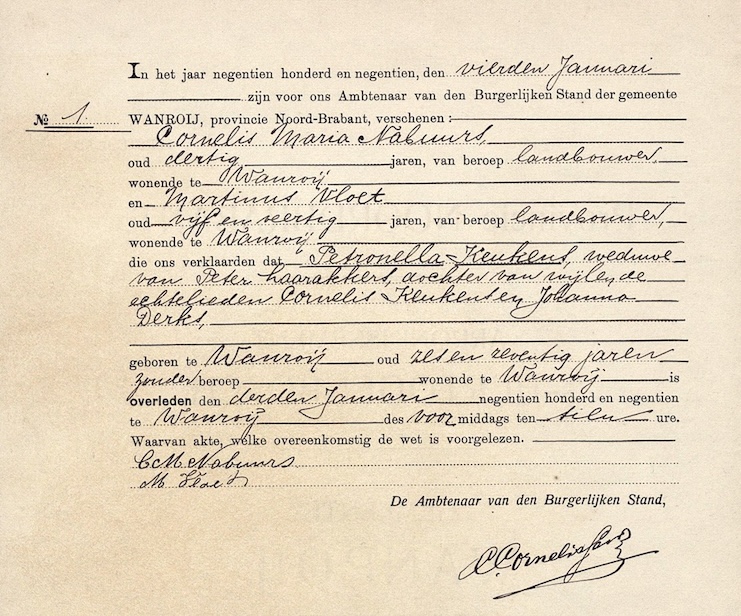 In het jaar negentien honderd en negentien, den vierden Januari
zijn voor ons Ambtenaar van den Burgerlijken Stand der gemeente
№ 1. WANROIJ, provincie Noord-Brabant, verschenen:
Cornelis Maria Nabuurs,
oud dertig jaren, van beroep landbouwer,
wonende te Wanroij
en Martinus Vloet
oud vijf en veertig jaren, van beroep landbouwer,
wonende te Wanroij
die ons verklaarden dat Petronella Keukens, weduwe
van Peter Haarakkers, dochter van wijlen de
echtelieden Cornelis Keukens en Johanna
Derks,
geboren te Wanroij oud zes en zeventig jaren
zonder beroep wonende te Wanroij is
overleden den derden Januari negentien honderd en negentien
te Wanroij des voor middags ten tien ure.
Waarvan akte, welke overeenkomstig de wet is voorgelezen.
C M Nabuurs
M Vloet
De Ambtenaar van den Burgerlijken Stand,